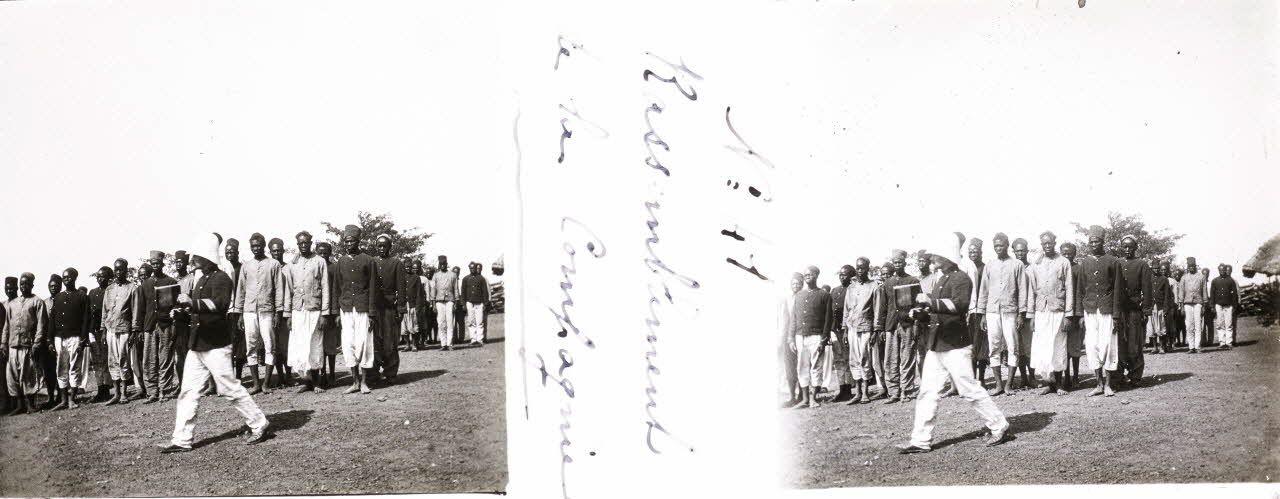 N° 44
Rassemblement
de la Compagnie